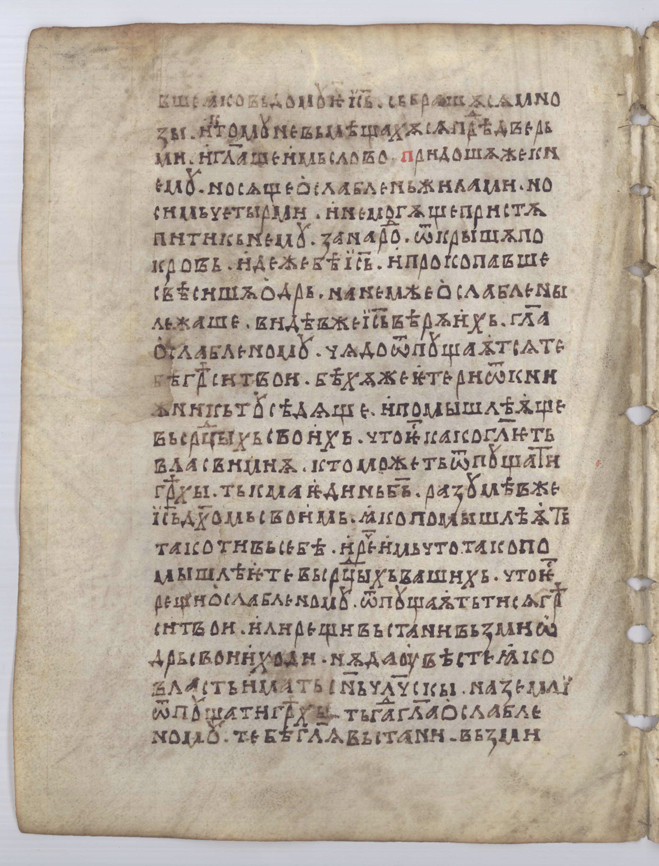 вшеꙗковьдомоуѥі҃ь. събрашѧсѧмно
зы. ꙗ҆томоуневьмѣщахѫсѧпрѣ҇дверь
ми. ꙗ҆гл҃ашеимьслово придошѧжекн
емꙋ. носѧщеѡ҆слабленьжилами. но
симьчетырми. ꙇнемогѫщепристѫ
питикьнемꙋ. занаро҇. ѿкрышѧпо
кровь. идежебѣі҃сь. ипрокопавше
свѣсишѧѻдрь. нанемжеѻслаблены
лежаше. видѣвжеі҃сьвѣрѫихь. гл҃а
ѻслабленомꙋ. чѧдоѿпꙋщаѫтсѧте
бегрс҇итвои. бѣхѫжеѥтериѿкни
жникьтꙋсѣдѧще. ипомышлѣѫще
вьср҇цыхьсвоихь. чтоѥ҇какогл҃ѥть
власвимиѧ. ктоможетьѿпꙋщати
грх҇ы. тькмаѥдиньб҃ь. разꙋмѣвже
і҃сьдх҃омьсвоимь. ꙗкопомышлѣѫть
такотивьсебѣ. ирече҇имьчтотакопо
мышлѣѥтевьср҇цыхьвашихь. чтоѥ҇
рещиѻслабленомꙋ. ѿпꙋщаѫтьтисѧгр҇
ситвои. илирещивьстанивьзмиѡ
дрьсвоииходи. нѫдаоувѣстеꙗко
властьиматьсн҃ьчл҃чускы. наземлі
ѿпꙋщатигрх҇ы. тьг҃агл҃аѻслабле
номꙋ. тебѣгл҃ѫвьстани. вьзми